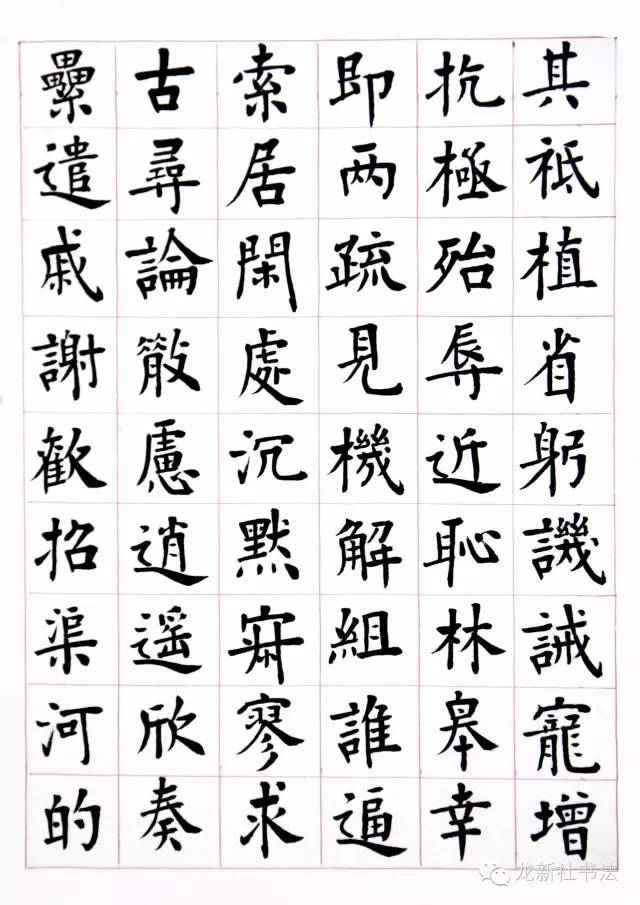 其祗植省躬譏誡寵增
抗極殆辱近恥林皋幸
即两疏見機解組誰逼
索居閑處沉默寂寥求
古尋論散慮逍遥欣奏
纍遣戚謝歡招渠河的
龙新社书法